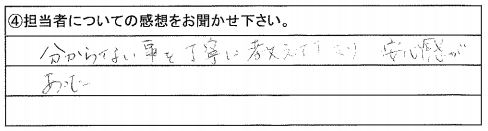 ④担当者についての感想をお聞かせ下さい。
分からない事を丁寧に教えて 安心感が